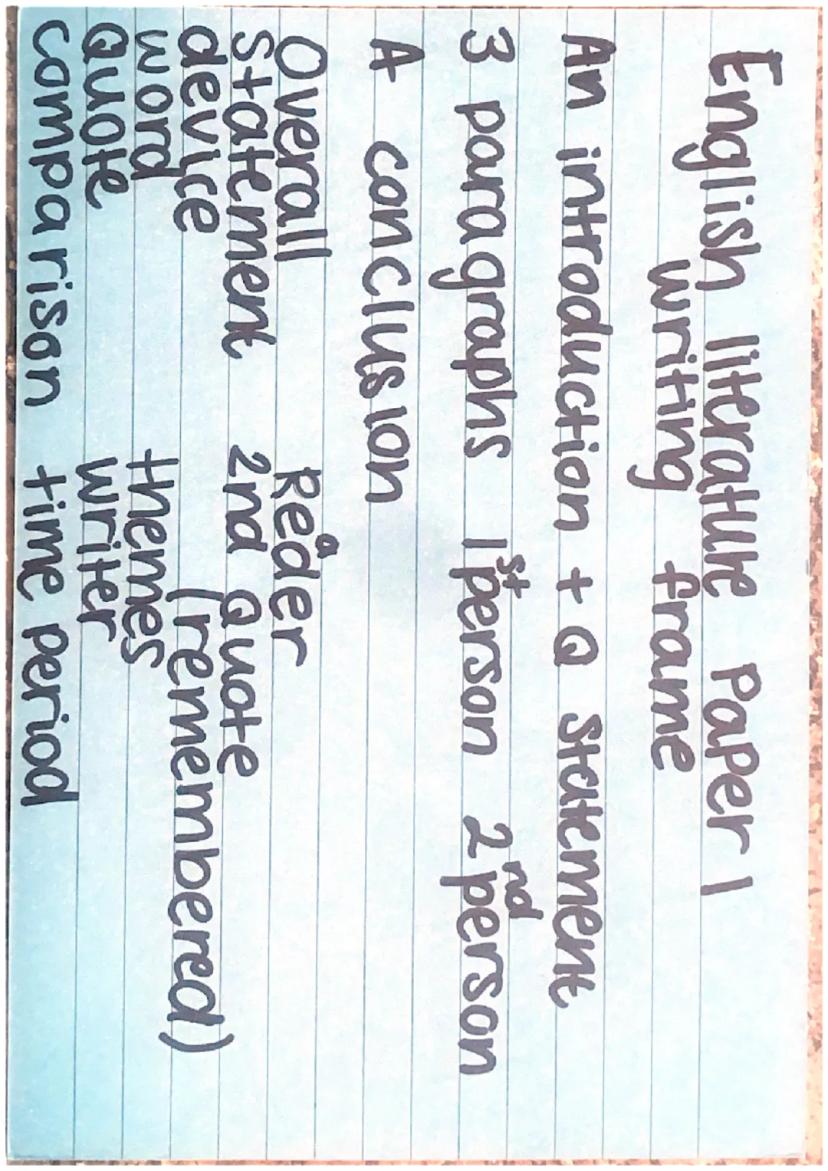 English literature paper 1
writing frame
An introduction + Q statement
3 paragraphs 1st person 2nd person
A conclusion
Overall
statement
device
word
Quote
comparison
Reader
2nd Quote
(remembered)
themes
writer
time period